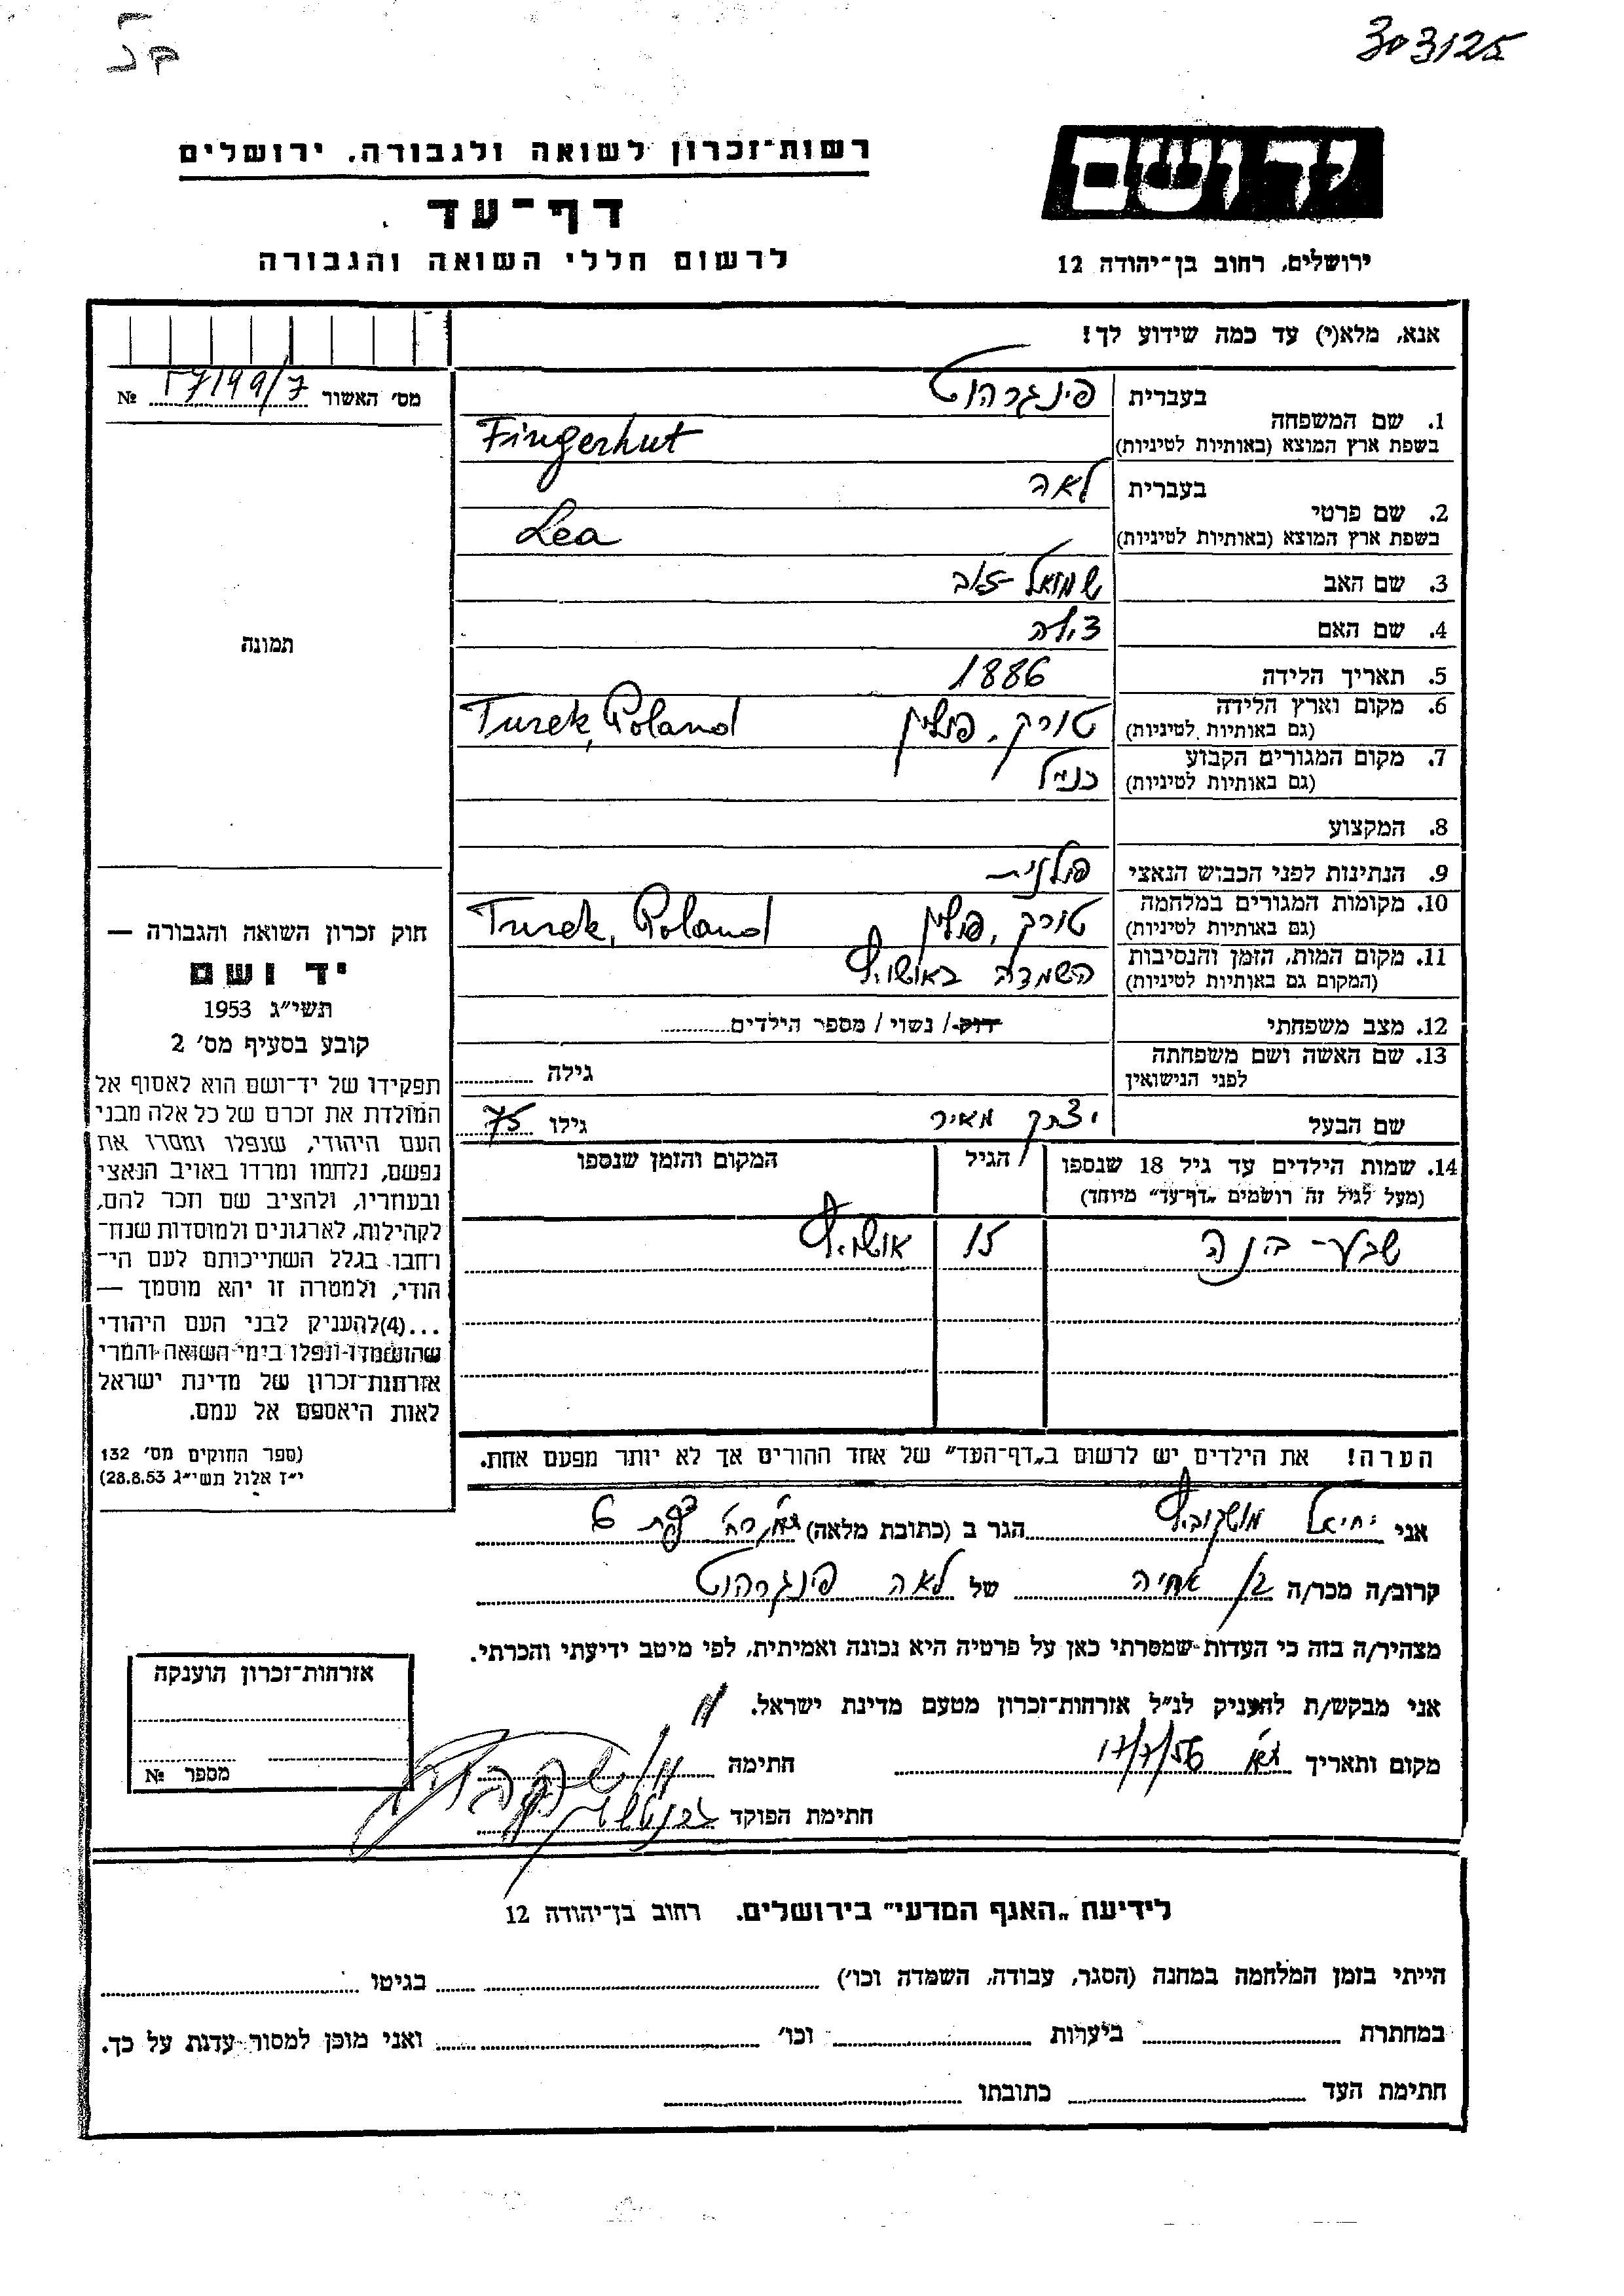 303125
רשות־זכרון לשואה ולגבורה, ירושלים
דף־עד
לרשום חללי השואה והגבורה
ידושם
ירושלים, רחוב בן־יהודה 12
אנא, מלא(י) עד כמה שידוע לך!
מס׳ האשור № 57199/7
תמונה
1. שם המשפחה
בעברית פינגרהוט
בשפת ארץ המוצא (באותיות לטיניות) Fingerhut
2. שם פרטי
בעברית לאה
בשפת ארץ המוצא (באותיות לטיניות) Lea
3. שם האב שמואל-זאב
4. שם האם
5. תאריך הלידה 1886
6. מקום וארץ הלידה טורק, פולין Turek, Poland
(גם באותיות לטיניות)
7. מקום המגורים הקבוע כנ"ל
(גם באותיות לטיניות)
8. המקצוע
9. הנתינות לפני הכבוש הנאצי פולנית
10. מקומות המגורים במלחמה טורק, פולין Turek, Poland
(גם באותיות לטיניות)
11. מקום המות, הזמן והנסיבות השמדה באושויץ
(המקום גם באותיות לטיניות)
12. מצב משפחתי רווק / נשוי / מספר הילדים
13. שם האשה ושם משפחתה
לפני הנישואין גילה
שם הבעל יצחק מאיר גילו 75
14. שמות הילדים עד גיל 18 שנספו הגיל המקום והזמן שנספו
(מעל לגיל זה רושמים „דף־עד״ מיוחד)
שבע-הנה 15 אושויץ
הערה! את הילדים יש לרשום ב„דף־העד״ של אחד ההורים אך לא יותר מפעם אחת.
חוק זכרון השואה והגבורה —
יד ושם
תשי״ג 1953
קובע בסעיף מס׳ 2
תפקידו של יד־ושם הוא לאסוף אל
המולדת את זכרם של כל אלה מבני
העם היהודי, שנפלו ומסרו את
נפשם, נלחמו ומרדו באויב הנאצי
ובעוזריו, ולהציב שם וזכר להם,
לקהילות, לארגונים ולמוסדות שנח־
רחבו בגלל השתייכותם לעם הי־
הודי, ולמטרה זו יהא מוסמך —
...(4) להעניק לבני העם היהודי
שהושמדו ונפלו בימי השואה והמרי
אזרחות־זכרון של מדינת ישראל
לאות היאספם אל עמם.
(ספר החוקים מס׳ 132
י״ז אלול תשי״ג 28.8.53)
אני יחיאל מושקוביץ הגר ב (כתובת מלאה) צפת 6
קרוב/ה מכר/ה בן אחיה של לאה פינגרהוט
מצהיר/ה בזה כי העדות שמסרתי כאן על פרטיה היא נכונה ואמיתית, לפי מיטב ידיעתי והכרתי.
אני מבקש/ת להעניק לנ״ל אזרחות־זכרון מטעם מדינת ישראל.
מקום ותאריך 17/7/56 חתימה
חתימת הפוקד
אזרחות־זכרון הוענקה
מספר №
לידיעת „האגף המדעי״ בירושלים, רחוב בן־יהודה 12
הייתי בזמן המלחמה במחנה (הסגר, עבודה, השמדה וכו׳) בגיטו
במחתרת ביערות וכו׳ ואני מוכן למסור עדות על כך.
חתימת העד כתובתו